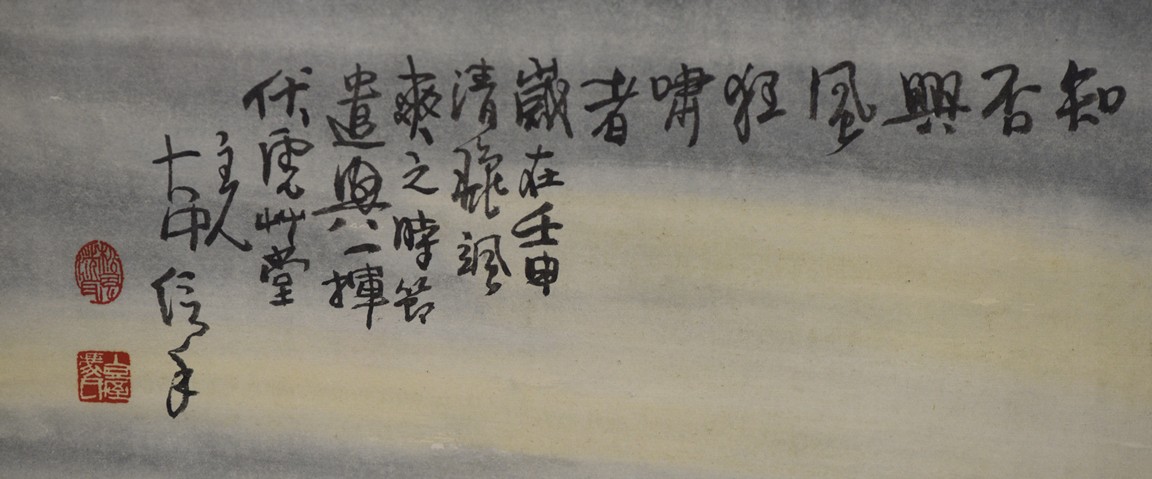 知否興風狂嘯者
歲在壬申
清 颯
爽之時節
遣興一揮
伏虎草堂
主人
大中信手